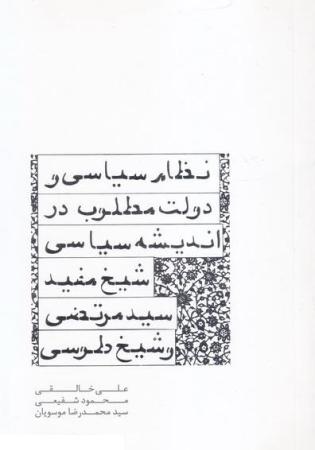 نظام سیاسی و
دولت مطلوب در
اندیشه سیاسی
شیخ مفید
سید مرتضی
و شیخ طوسی
علی خالقی
محمود شفیعی
سید محمدرضا موسویان